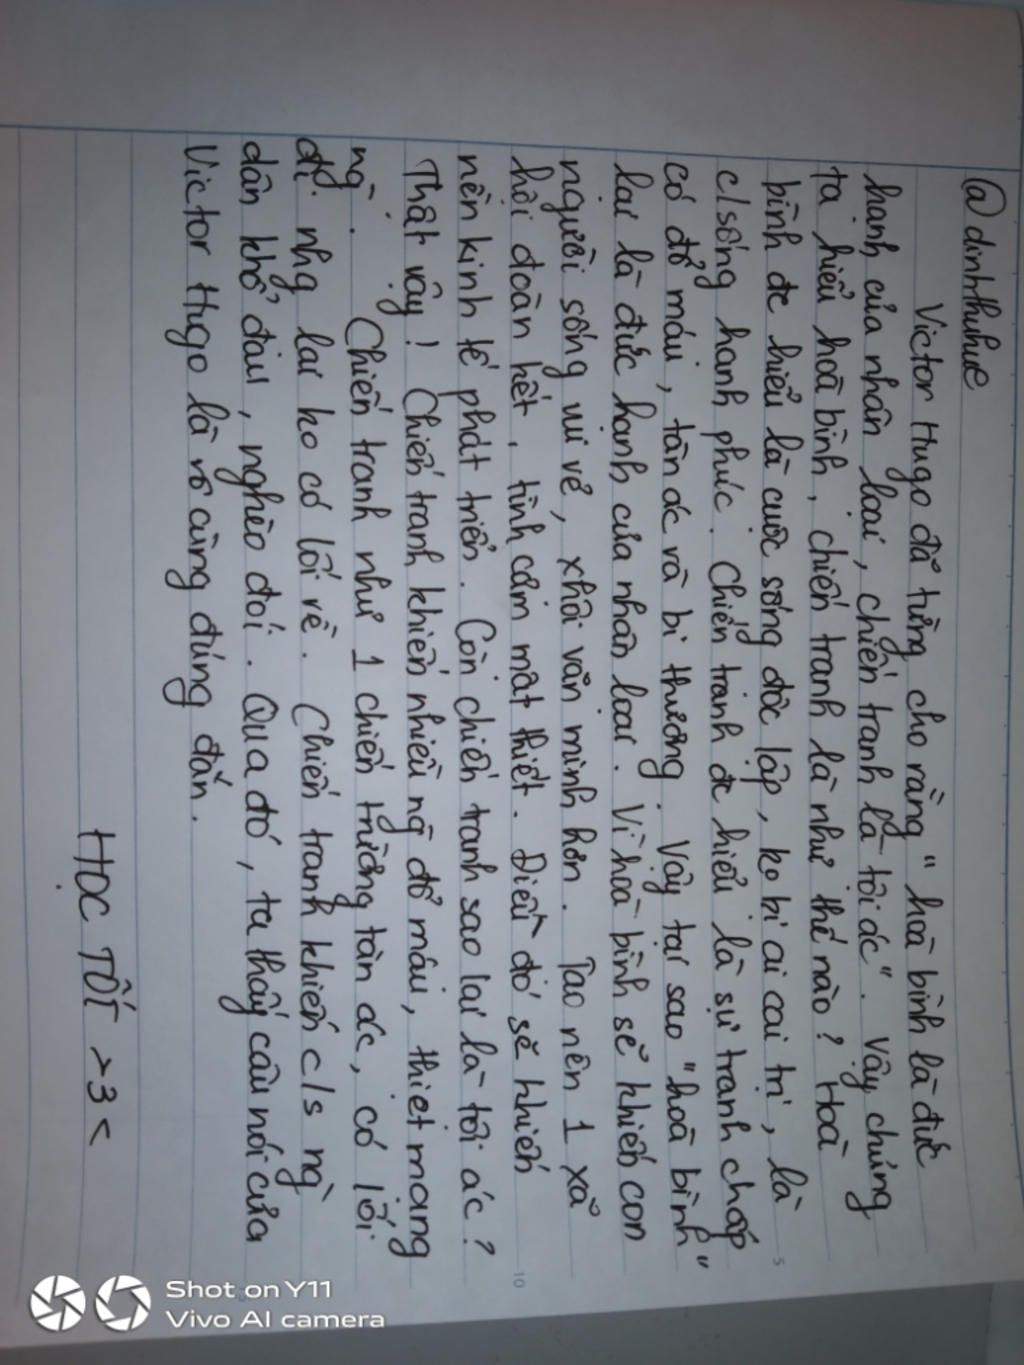 @dinhthuhue
Victor Hugo đã từng cho rằng "hoà bình là đức
hạnh của nhân loại, chiến tranh là tội ác". Vậy chúng
ta hiểu hoà bình, chiến tranh là như thế nào? Hoà
bình đc hiểu là cuộc sống độc lập, ko bị ai cai trị, là
c/sống hạnh phúc. Chiến tranh đc hiểu là sự tranh chấp
có đổ máu, tàn ác và bi thương. Vậy tại sao "hoà bình"
lại là đức hạnh của nhân loại. Vì hoà bình sẽ khiến con
người sống vui vẻ, xhội văn minh hơn. Tạo nên 1 xã
hội đoàn kết, tình cảm mật thiết. Điều đó sẽ khiến
nền kinh tế phát triển. Còn chiến tranh sao lại là tội ác?
Thật vậy! Chiến tranh khiến nhiều ng đổ máu, thiệt mạng
ng. Chiến tranh như 1 chiến trường tàn ác, có lối
đi nhg lại ko có lối về. Chiến tranh khiến c/s ng
dân khổ đau, nghèo đói. Qua đó, ta thấy câu nói của
Victor Hugo là vô cùng đúng đắn.
HỌC TỐT >3<
5
10
Shot on Y11
Vivo AI camera